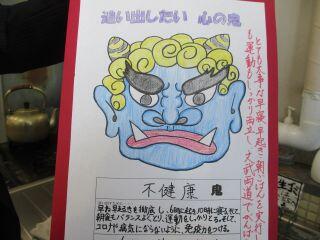 追い出したい 心の鬼
とても大事な早寝早起き朝ごはんを実行
も運動もしっかり両立し文武両道でがんば
不健康 鬼
早ね早おきを徹底し、6時に起き10時に寝るなどし
朝食もバランスよくとり、運動をしっかりとる。そして、
コロナや病気にならないように 免疫力をつける。